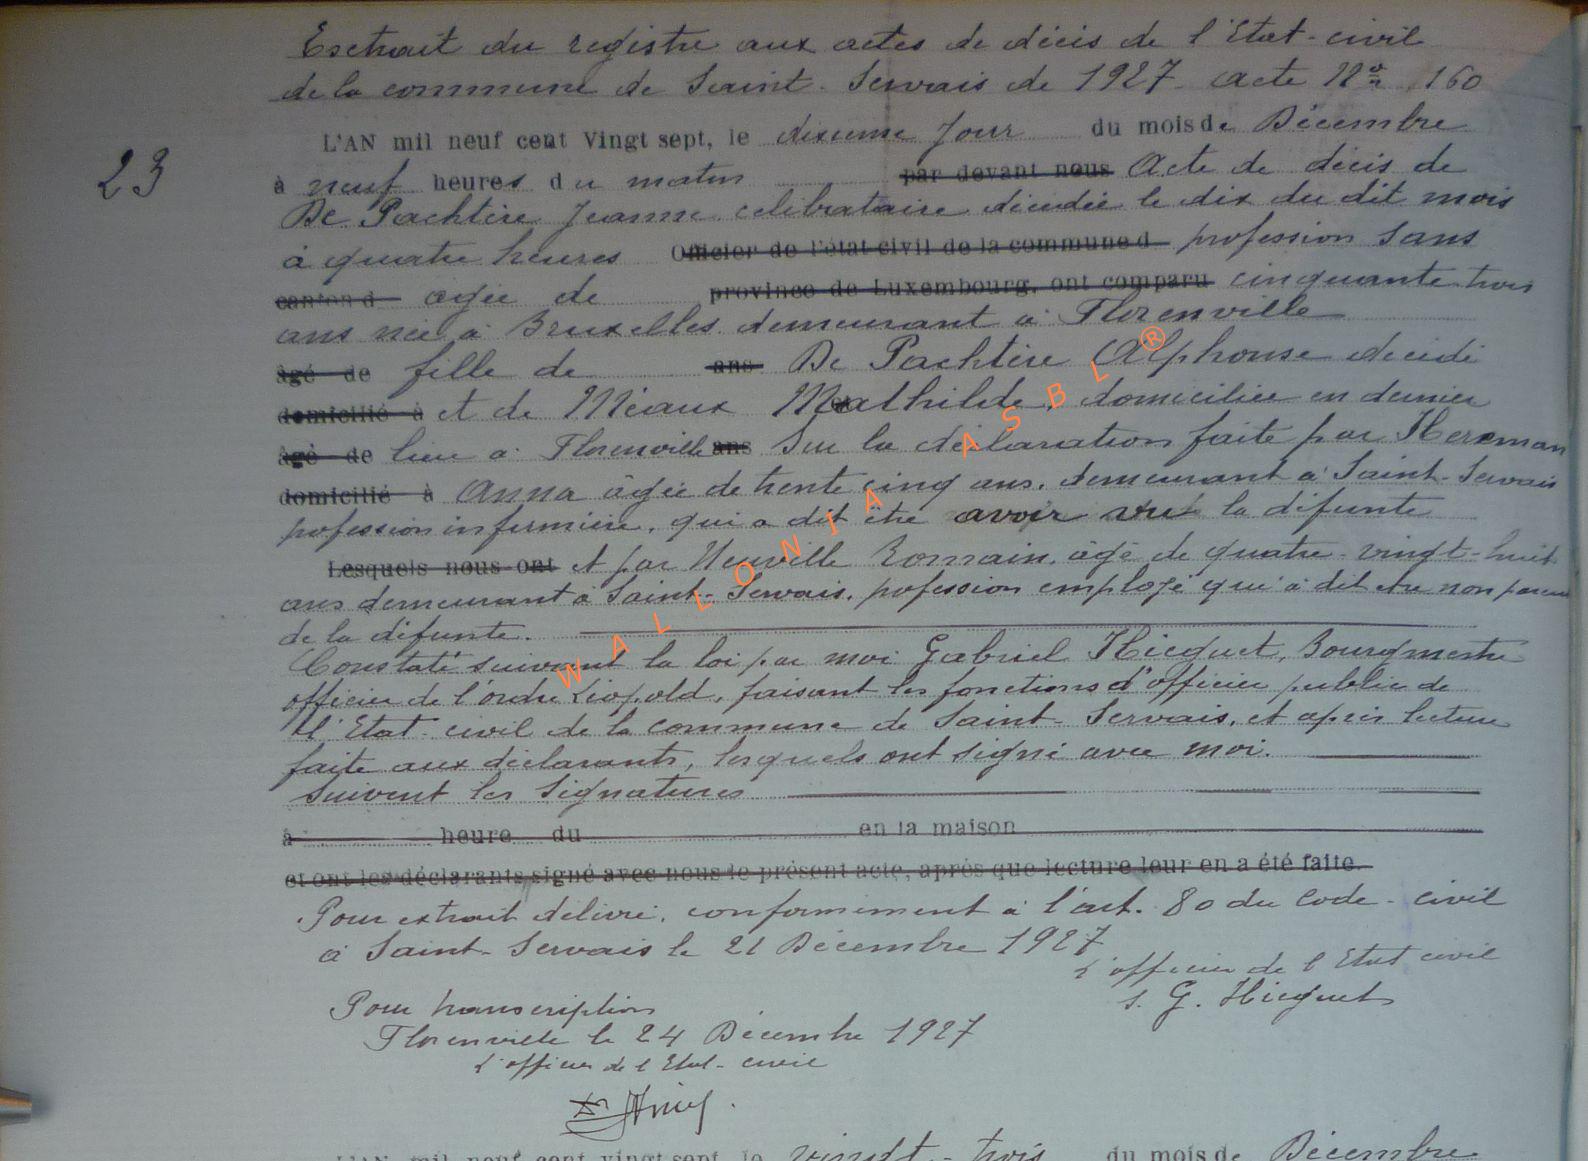 Extrait du registre aux actes de décès de l'Etat-civil
de la commune de Saint-Servais de 1927 acte No 160
23
L'AN mil neuf cent Vingt sept, le dixieme Jour du mois de Décembre
à neuf heures du matin par devant nous Acte de décès de
De Pachtère Jeanne celibataire décédée le dix du dit mois
à quatre heures Officier de l'état civil de la commune d profession sans
canton d agée de province de Luxembourg, ont comparu cinquante-trois
ans née à Bruxelles demeurant à Florenville
âgé de fille de ans De Pachtère Alphonse décédé
domicilié à et de Méaux Mathilde, domiciliée en dernier
âgé de lieu à Florenville ans Sur la déclaration faite par Herman
domicilié à Anna âgée de trente cinq ans, demeurant à Saint-Servais
profession infirmière, qui a dit être avoir vu la défunte
Lesquels nous ont et par Neuville Romain, âgé de quatre-vingt-huit
ans demeurant à Saint-Servais, profession employé qui a dit être non parent
de la défunte.
Constaté suivant la loi par moi Gabriel Hicguet, Bourgmestre
officier de l'ordre Léopold, faisant les fonctions d'officier public de
l'Etat-civil de la commune de Saint-Servais, et après lecture
faite aux déclarants, lesquels ont signé avec moi.
Suivent les Signatures
à heure du en la maison
et ont les déclarants signé avec nous le présent acte, après que lecture leur en a été faite.
Pour extrait délivré, conformément à l'art. 80 du Code-civil
à Saint-Servais le 21 Décembre 1927
L'officier de l'Etat civil
s. G. Hicguet
Pour transcription
Florenville le 24 Décembre 1927
L'officier de l'Etat-civil
L'AN mil neuf cent vingt sept, le vingt-trois du mois de Décembre
WALLONIA ASBL®